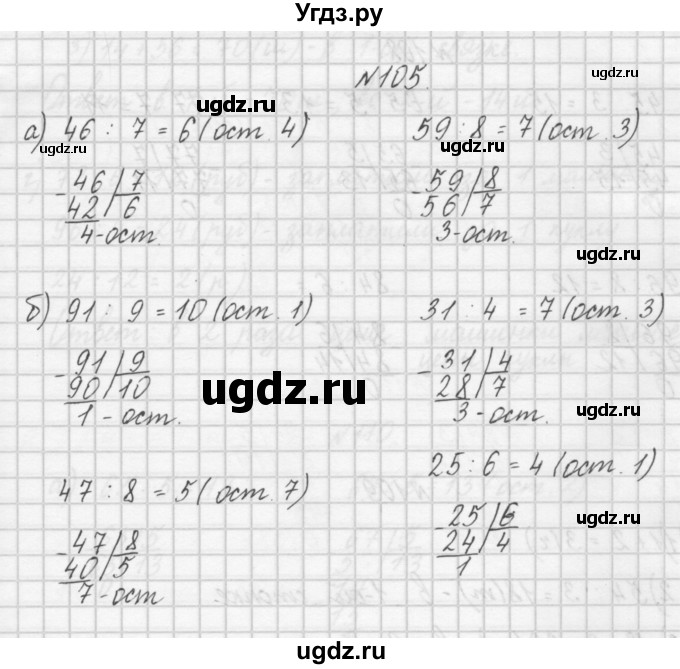 Угдз.ру
№105.
ugdz.ru
а) 46 : 7 = 6 (ост. 4)
59 : 8 = 7 (ост. 3)
ugdz.ru
ugdz.ru
-46|7
42|6
4-ост.
-59|8
56|7
3-ост.
ugdz.ru
ugdz.ru
б) 91 : 9 = 10 (ост. 1)
31 : 4 = 7 (ост. 3)
-91|9
90|10
1-ост.
-31|4
28|7
3-ост.
ugdz.ru
ugdz.ru
ugdz.ru
47 : 8 = 5 (ост. 7)
25 : 6 = 4 (ост. 1)
-47|8
40|5
7-ост
-25|6
24|4
1
ugdz.ru
ugdz.ru
ugdz.ru